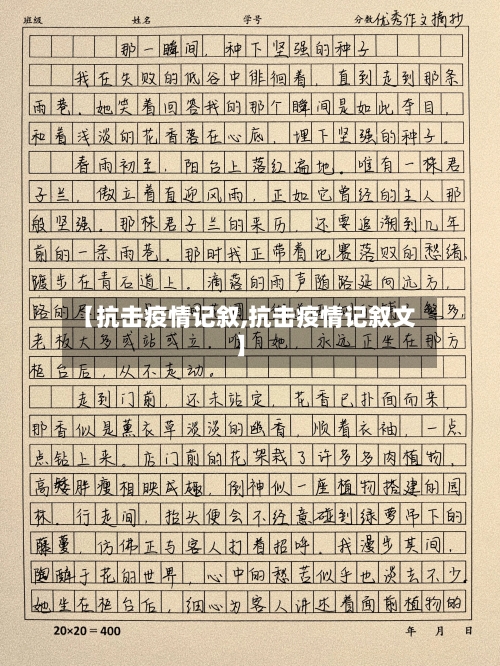 班级 姓名 学号 分数 优秀作文摘抄
那一瞬间，种下坚强的种子
我在失败的低谷中徘徊着，直到走到那条
雨巷。她笑着回答我的那个瞬间是如此夺目，
和着浅淡的花香落在心底，埋下坚强的种子。
春雨初至，阳台上落红遍地。唯有一株君
子兰，傲立着直迎风雨，正如它曾经的主人那
般坚强。那株君子兰的来历，还要追溯到几年
前的一条雨巷。那时我正带着比赛落败的愁绪，
踱步在青石道上。滴落的雨声随路延向远方，
路的尽 多，
【抗击疫情记叙,抗击疫情记叙文
】
老板大多或站或立，唯有她，永远正坐在那方
柜台后，从不走动。
走到门前，还未站定，花香已扑面而来，
那香似是薰衣草淡淡的幽香，顺着衣袖，一点
点钻上来。店门前的花架栽了许多多肉植物，
高矮胖瘦相映成趣，倒神似一座植物搭建的园
林。行走间，抬头便会不经意碰到绿萝吊下的
藤蔓，仿佛正与客人打着招呼。我漫步其间，
陶醉于花的世界，心中的愁苦似乎也淡去不少。
她坐在柜台后，细心为客人讲述着面前植物的
20×20＝400 年 月 日